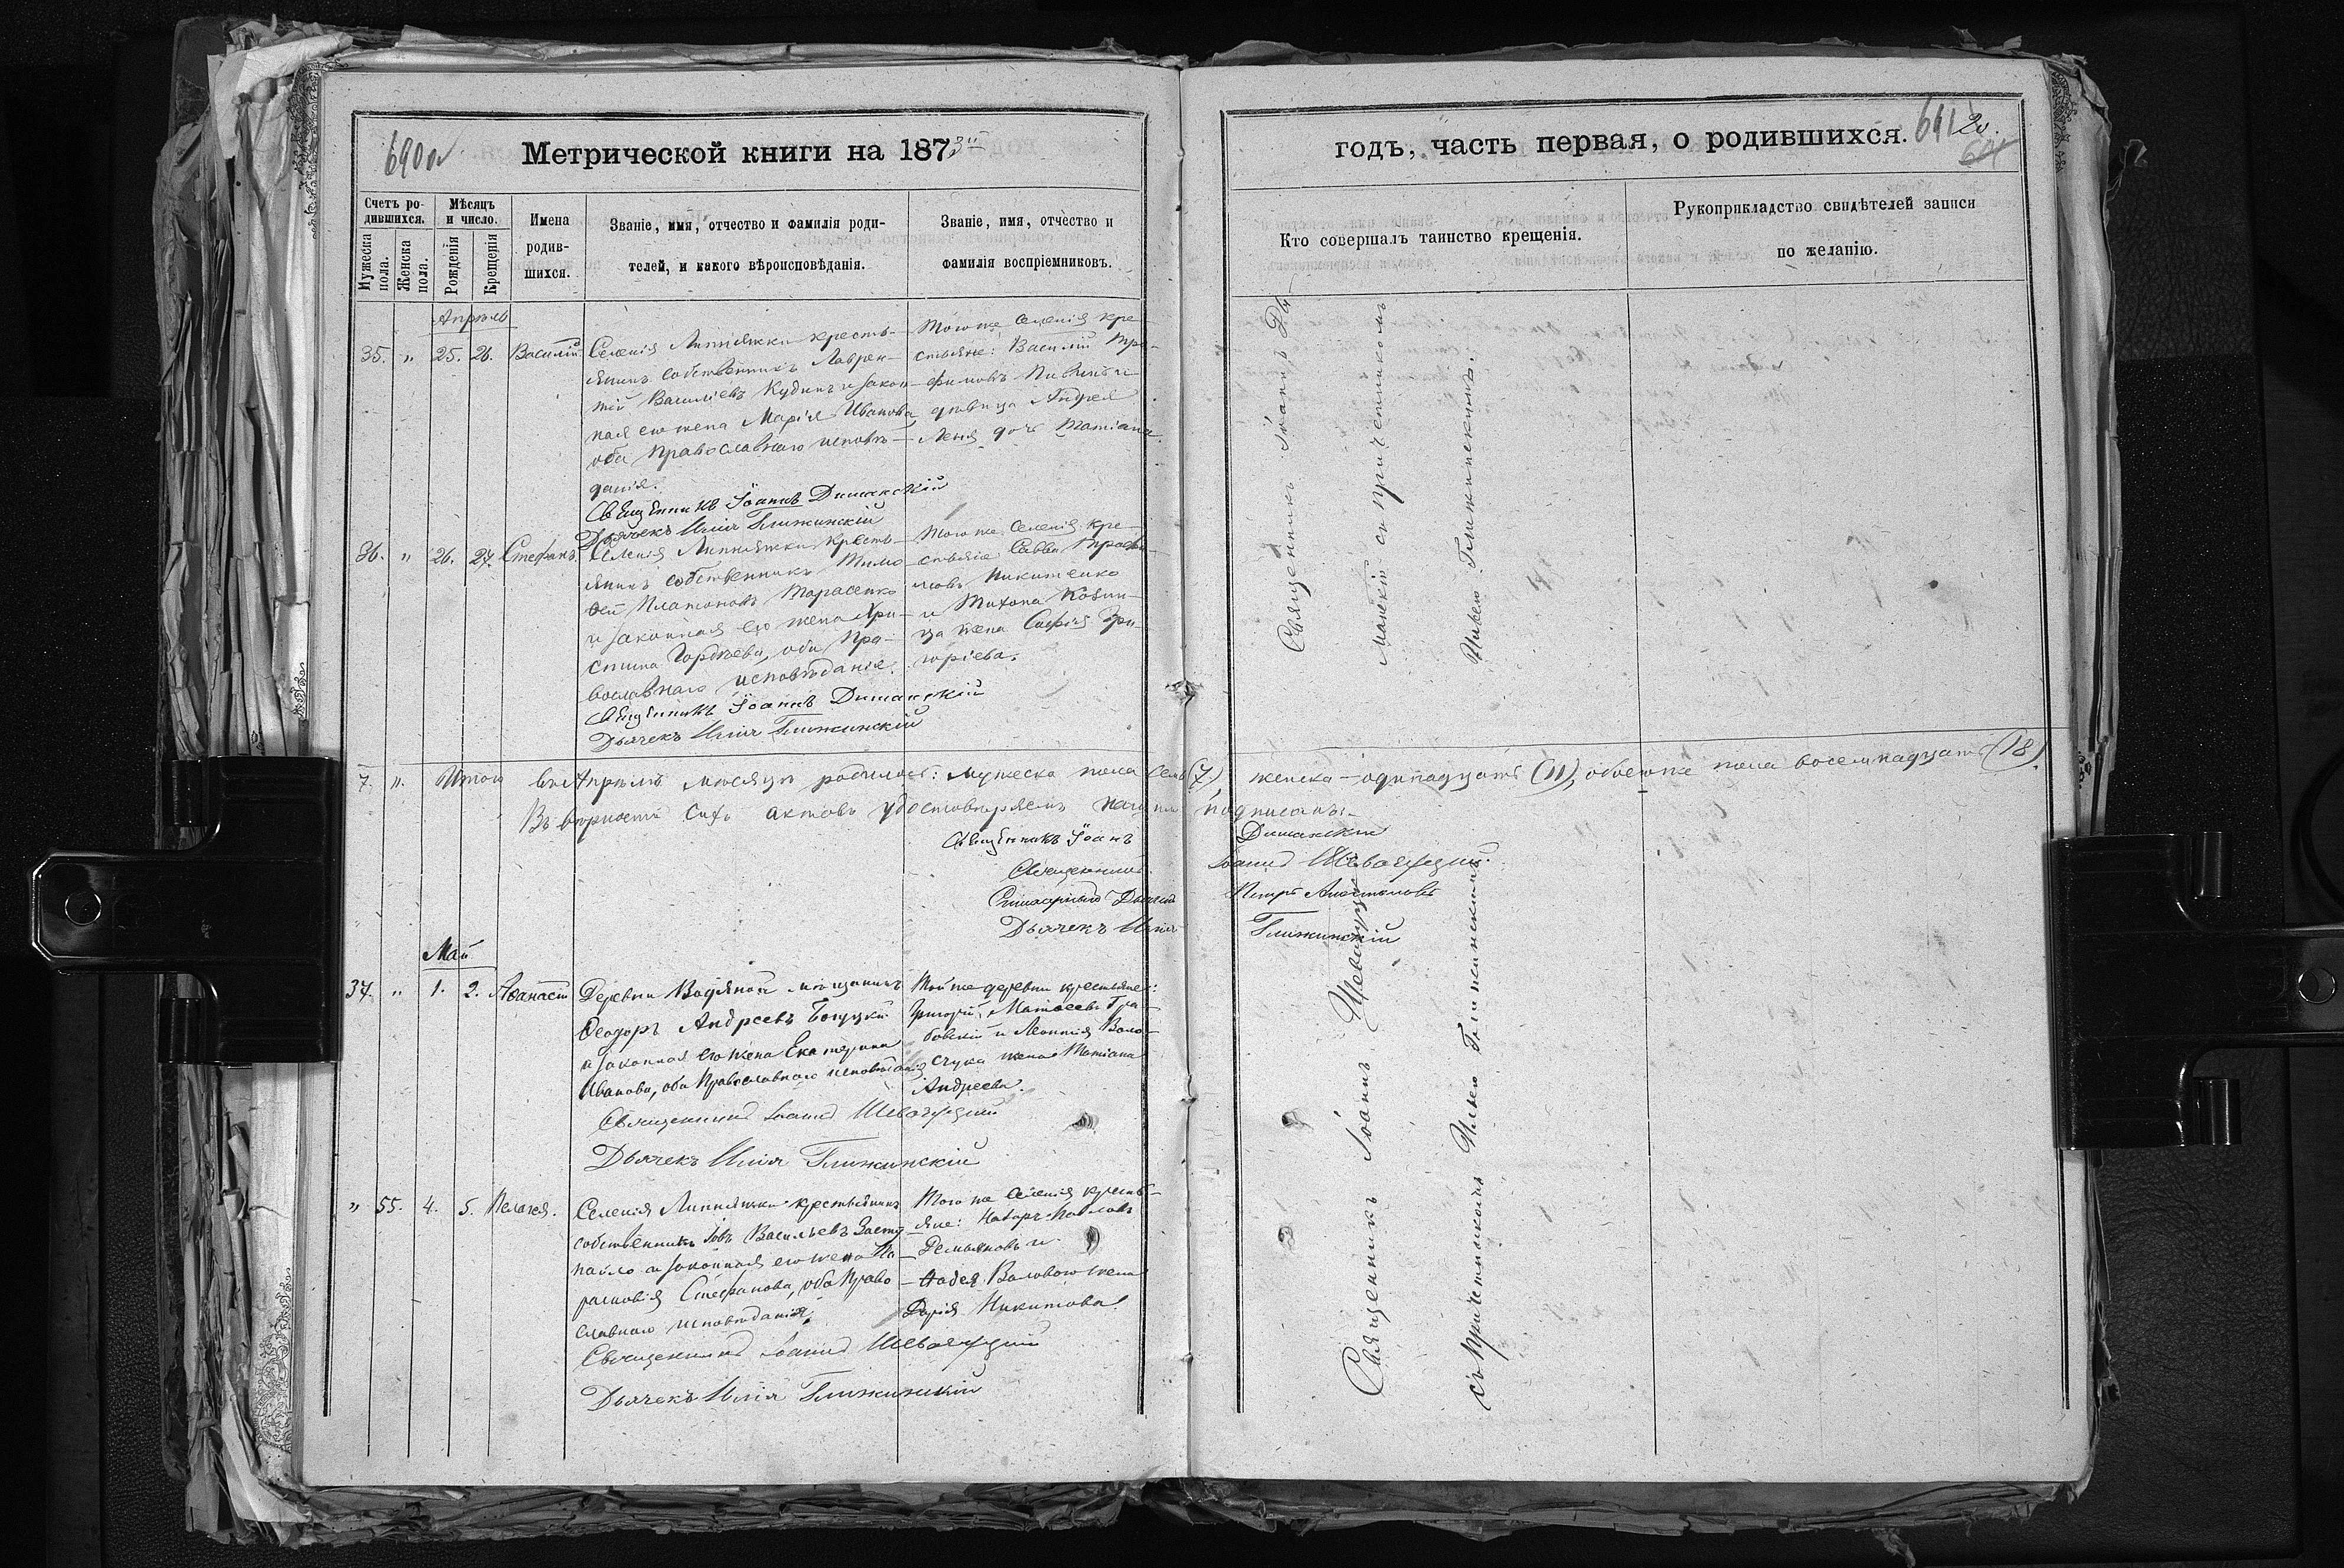 690
Метрической книги на 1873й
годъ, часть первая, о родившихся.
691
20.
Счетъ ро-
дившихся.
Мѣсяцъ
и число.
Мужеска
пола.
Женска
пола.
Рожденія
Крещенія
Имена
родив-
шихся.
Званіе, имя, отчество и фамилія роди-
телей, и какого вѣроисповѣданія.
Званіе, имя, отчество и
фамилія воспріемниковъ.
Кто совершалъ таинство крещенія.
Рукоприкладство свидѣтелей записи
по желанію.
Апрѣль
35. " 25. 26. Василій.
Селенія Липняжки кресть-
янинъ собственникъ Лаврен-
тій Василіевъ Кудинъ и закон-
ная его жена Марія Иванова,
оба православнаго исповѣ-
данія.
Священникъ Іоаннъ Диманскій
Дьячекъ Илія Глижинскій
Того же селенія кре-
стьяне: Василій Тро-
фимовъ и
дѣвица Андрея
дочь Татіана.
36. " 26. 27. Стефанъ.
Селенія Липняжки кресть-
янинъ собственникъ Тимо-
ѳей Платоновъ Тарасенко
и законная его жена Хри-
стина Гордѣева, оба пра-
вославнаго исповѣданія.
Священникъ Іоаннъ Диманскій
Дьячекъ Илія Глижинскій
Того же селенія кре-
стьяне: Савва
Никитенко
и Тихона
жена Софія Гри-
горіева.
Священникъ Іоаннъ Ди-
манскій съ причетникомъ
Иліею Глижинскимъ.
7. ". Итого въ Апрѣлѣ мѣсяцѣ родилось: мужеска пола семь (7), женска - одинадцать (11), обоего пола восемнадцать (18).
Въ вѣрности сихъ актовъ удостовѣряемъ нашимъ подписомъ.
Священникъ Іоаннъ Диманскій
Священникъ Іоаннъ Шевачуцкій.
Дьячекъ Петръ
Дьячекъ Илія Глижинскій
Май
37. " 1. 2. Аѳанасій
Деревни Водяной мѣщанинъ
Ѳеодоръ Андреевъ Богуцкій
и законная его жена Екатерина
Иванова, оба православнаго исповѣданія
Священникъ Іоаннъ Шевачуцкій
Дьячекъ Илія Глижинскій
Той же деревни крестьяне:
Григорій Матѳеевъ Гра-
бовскій и Леонтія Воло-
щука жена Татіана
Андреева.
" 55. 4. 5. Пелагея.
Селенія Липняжки крестьянинъ
собственникъ Іовъ Васильевъ Засту-
пайло и законная его жена Па-
расковія Стефанова, оба право-
славнаго исповѣданія.
Священникъ Іоаннъ Шевачуцкій
Дьячекъ Илія Глижинскій
Того же селенія кресть-
яне: Назаръ Павловъ
Демьяновъ и
жена
Дарія Никитова.
Священникъ Іоаннъ Шевачуцкій
съ причетникомъ Иліею Глижинскимъ